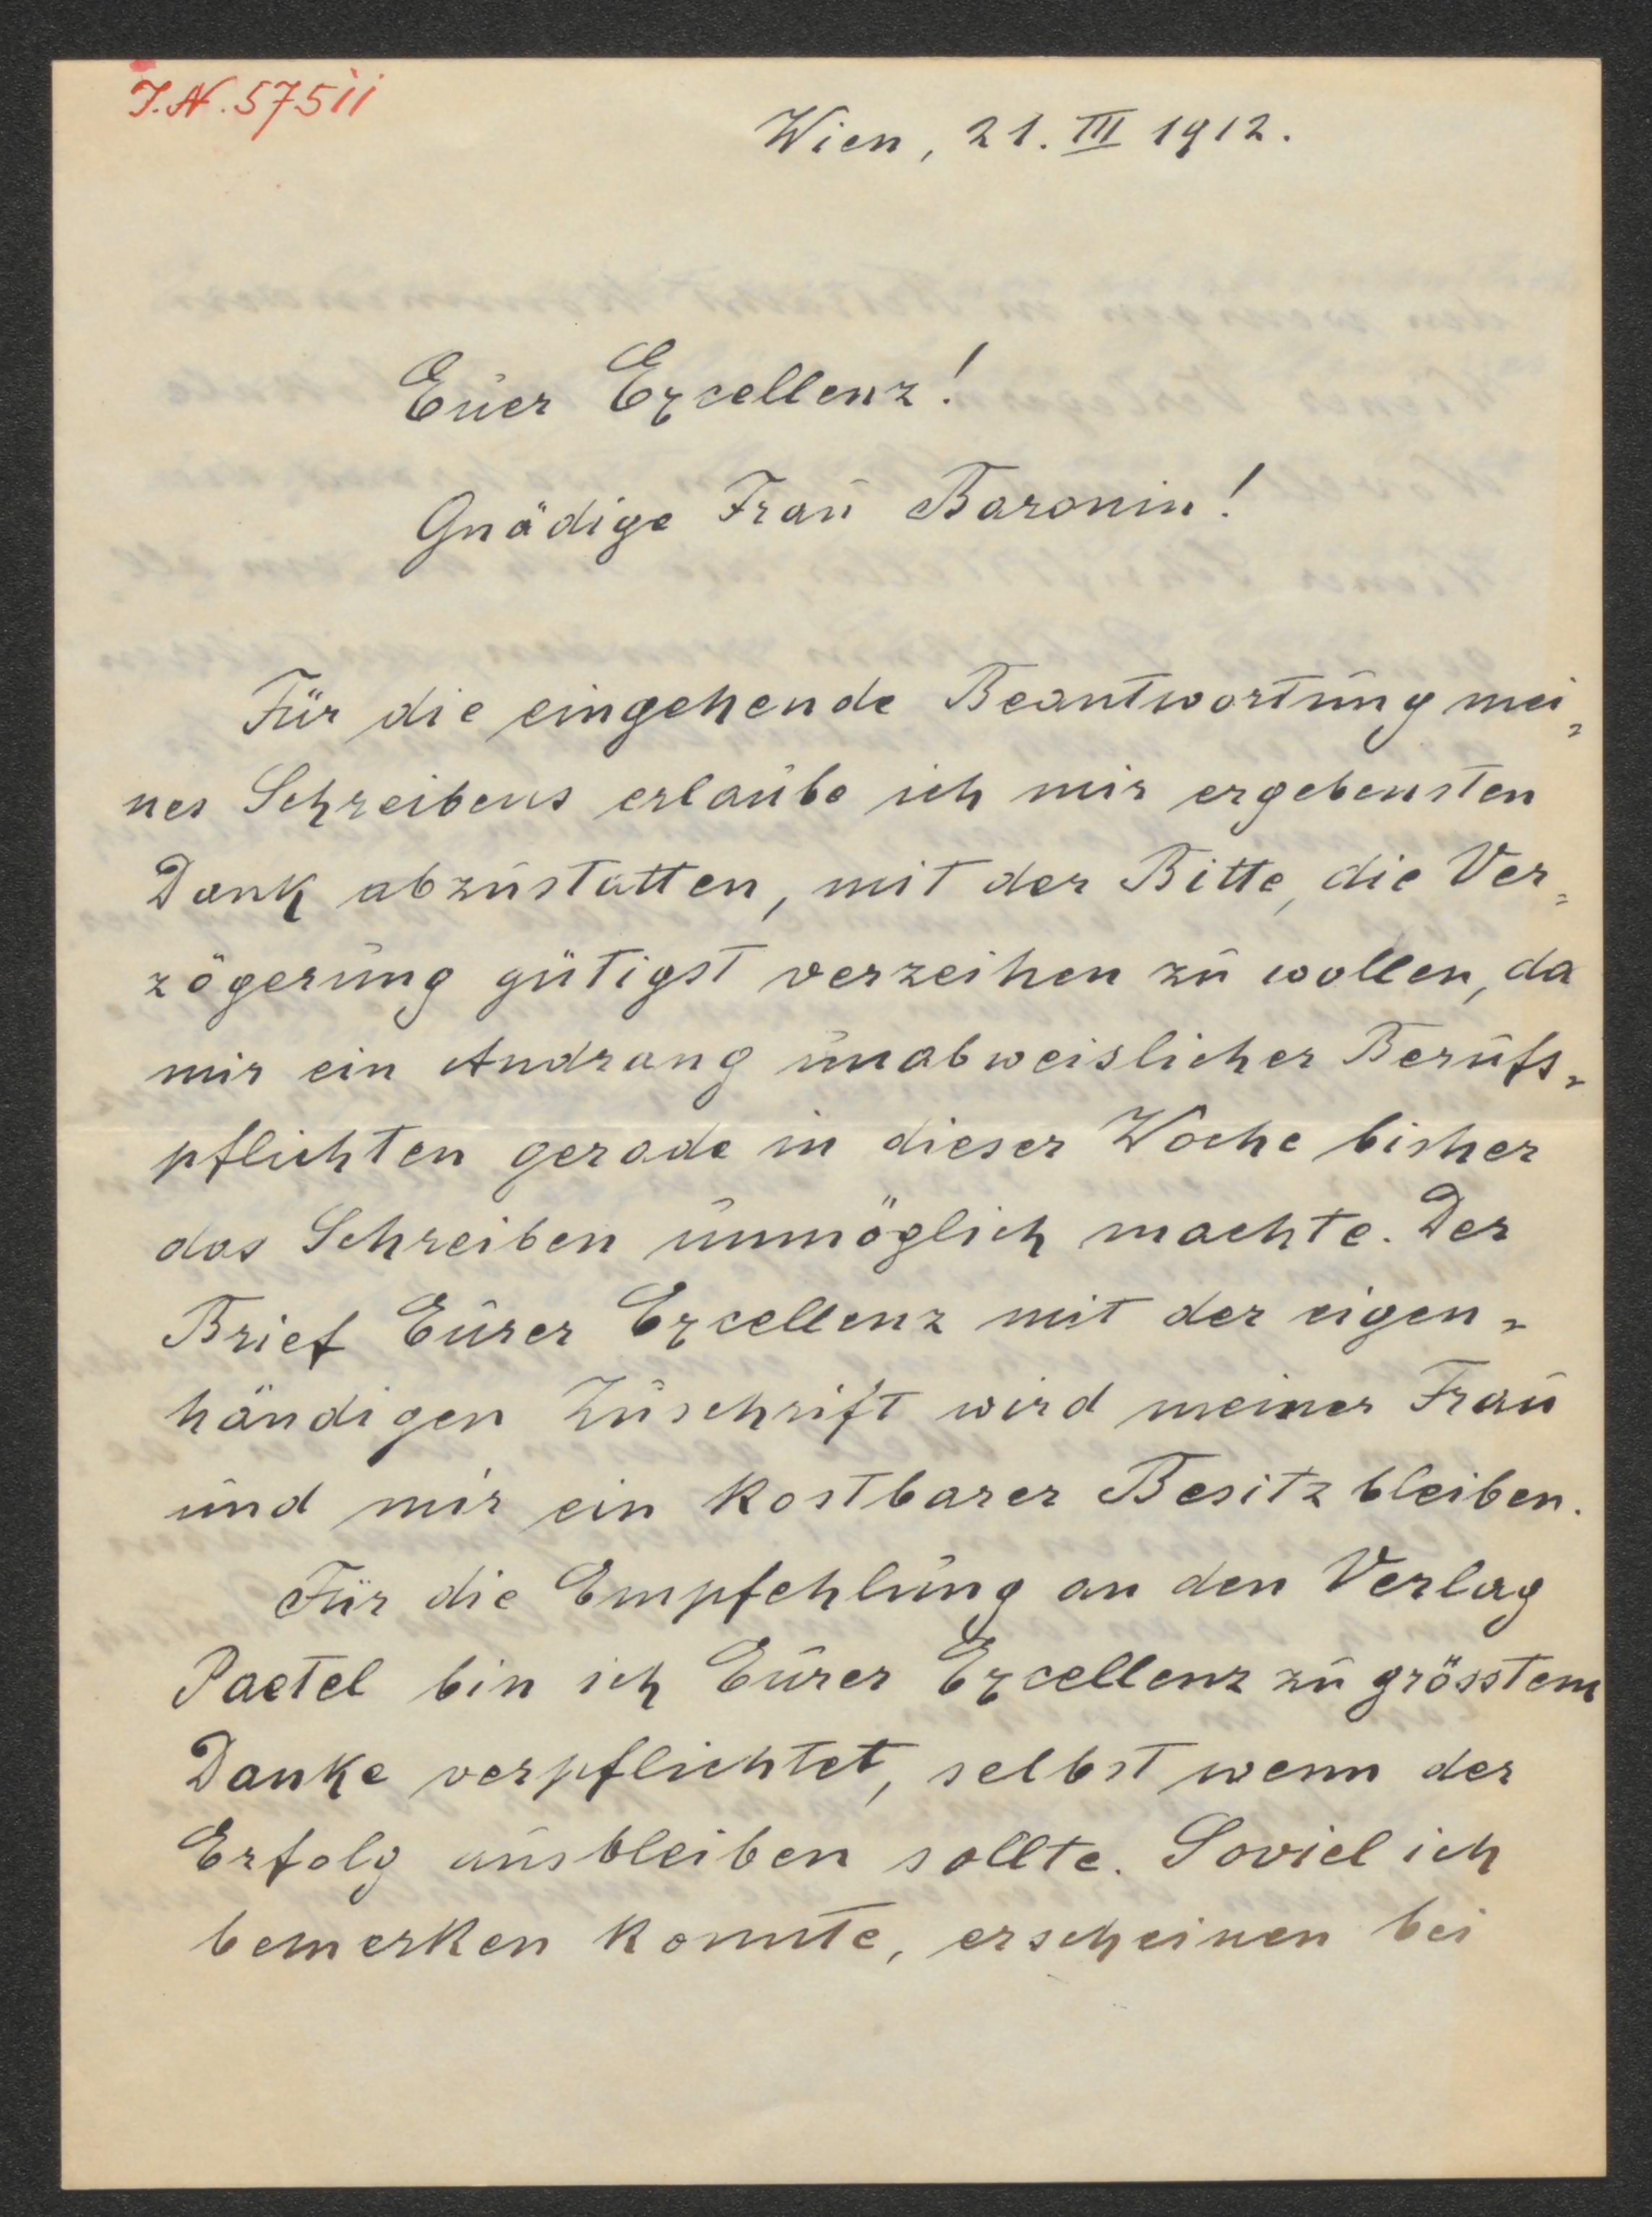 J.N. 57511
Wien, 21. III 1912.
Euer Excellenz!
Gnädige Frau Baronin!
Für die eingehende Beantwortung mei=
nes Schreibens erlaube ich mir ergebensten
Dank abzustatten, mit der Bitte, die Ver=
zögerung gütigst verzeihen zu wollen, da
mir ein Andrang unabweislicher Berufs=
pflichten gerade in dieser Woche bisher
das Schreiben unmöglich machte. Der
Brief Eurer Excellenz mit der eigen=
händigen Zuschrift wird meiner Frau
und mir ein kostbarer Besitz bleiben.
Für die Empfehlung an den Verlag
Paetel bin ich Eurer Excellenz zu grösstem
Danke verpflichtet, selbst wenn der
Erfolg ausbleiben sollte. Soviel ich
bemerken konnte, erscheinen bei